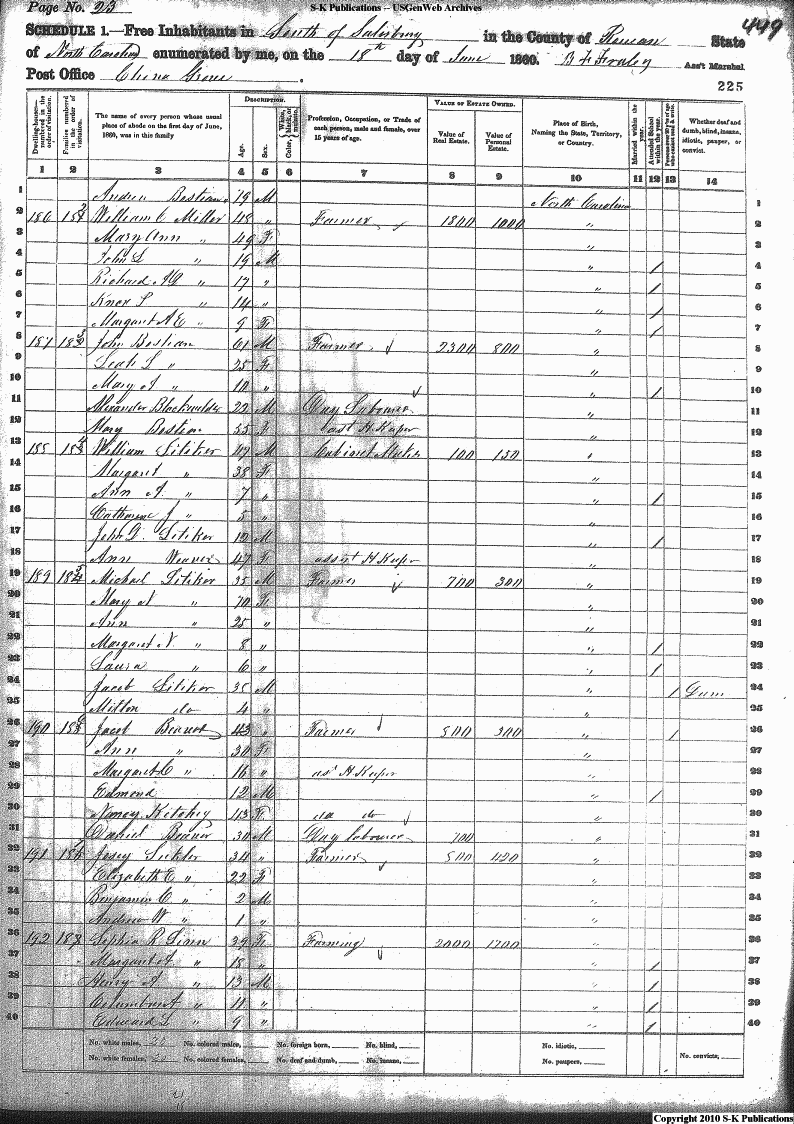 Page No. 23
S-K Publications -- USGenWeb Archives
449
SCHEDULE 1.—Free Inhabitants in South of Salisbury in the County of Rowan State
of North Carolina enumerated by me, on the 18th day of June 1860. B F Fraley Ass't Marshal.
Post Office China Grove.
225
Dwelling-houses numbered in the order of visitation.
Families numbered in the order of visitation.
The name of every person whose usual place of abode on the first day of June, 1860, was in this family
DESCRIPTION.
Age.
Sex.
Color, White, black, or mulatto.
Profession, Occupation, or Trade of each person, male and female, over 15 years of age.
VALUE OF ESTATE OWNED.
Value of Real Estate.
Value of Personal Estate.
Place of Birth, Naming the State, Territory, or Country.
Married within the year.
Attended School within the year.
Persons over 20 y'rs of age who cannot read & write.
Whether deaf and dumb, blind, insane, idiotic, pauper, or convict.
1 2 3 4 5 6 7 8 9 10 11 12 13 14
1 Andrew Bostian 19 M North Carolina 1
2 186 William C Miller 48 " Farmer 1800 1000 " 2
3 Mary Ann " 49 F " 3
4 John L " 19 M " / 4
5 Richard " 17 " " / 5
6 Knox S " 14 " " / 6
7 Margaret A E " 9 F " / 7
8 187 John Bostian 61 M Farmer 2300 800 " 8
9 Leah L " 25 F " 9
10 Mary A " 10 " " / 10
11 Alexander Blackwelder 22 M Day Labourer " 11
12 Mary Bostian 55 F asst H Keeper " 12
13 188 William Litiker 47 M Cabinet 100 150 " 13
14 Margaret " 38 F " 14
15 Ann A. " 7 " " / 15
16 Catharine J " 5 " " 16
17 John D. Litiker 12 M " / 17
18 Ann Weaver 47 F assist H Keeper " 18
19 189 Michael Litiker 35 M Farmer 700 300 " 19
20 Mary " 70 F " 20
21 Ann " 25 " " 21
22 Margaret N. " 8 " " / 22
23 Laura " 6 " " / 23
24 Jacob Litiker 35 M " / Dum 24
25 Milton do 4 " " 25
26 190 Jacob Beaver 43 " Farmer 500 300 " / 26
27 Ann " 30 F " 27
28 Margaret C " 16 " as't H Keeper " 28
29 Edmond 12 M " / 29
30 Nancy Kitchey 43 F do do " 30
31 Daniel Beaver 30 M Day labourer 100 " 31
32 191 34 " Farmer 500 420 " 32
33 Elizabeth E " 22 F " 33
34 Benjamin C " 2 M " 34
35 Andrew W " 1 " " 35
36 192 Sophia R Linn 39 F Farming 2000 1700 " 36
37 Margaret A " 18 " " / 37
38 Henry A " 13 M " / 38
39 Columbus A " 11 " " / 39
40 Edward L " 9 " " / 40
No. white males, 20 No. colored males, No. foreign born, No. blind, No. idiotic,
No. white females, 20 No. colored females, No. deaf and dumb, No. insane, No. paupers, No. convicts,
Copyright 2010 S-K Publications